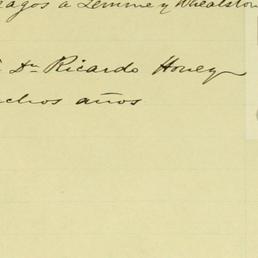 agos a Lemmey Wheatston
Dn Ricardo Honey
chos años